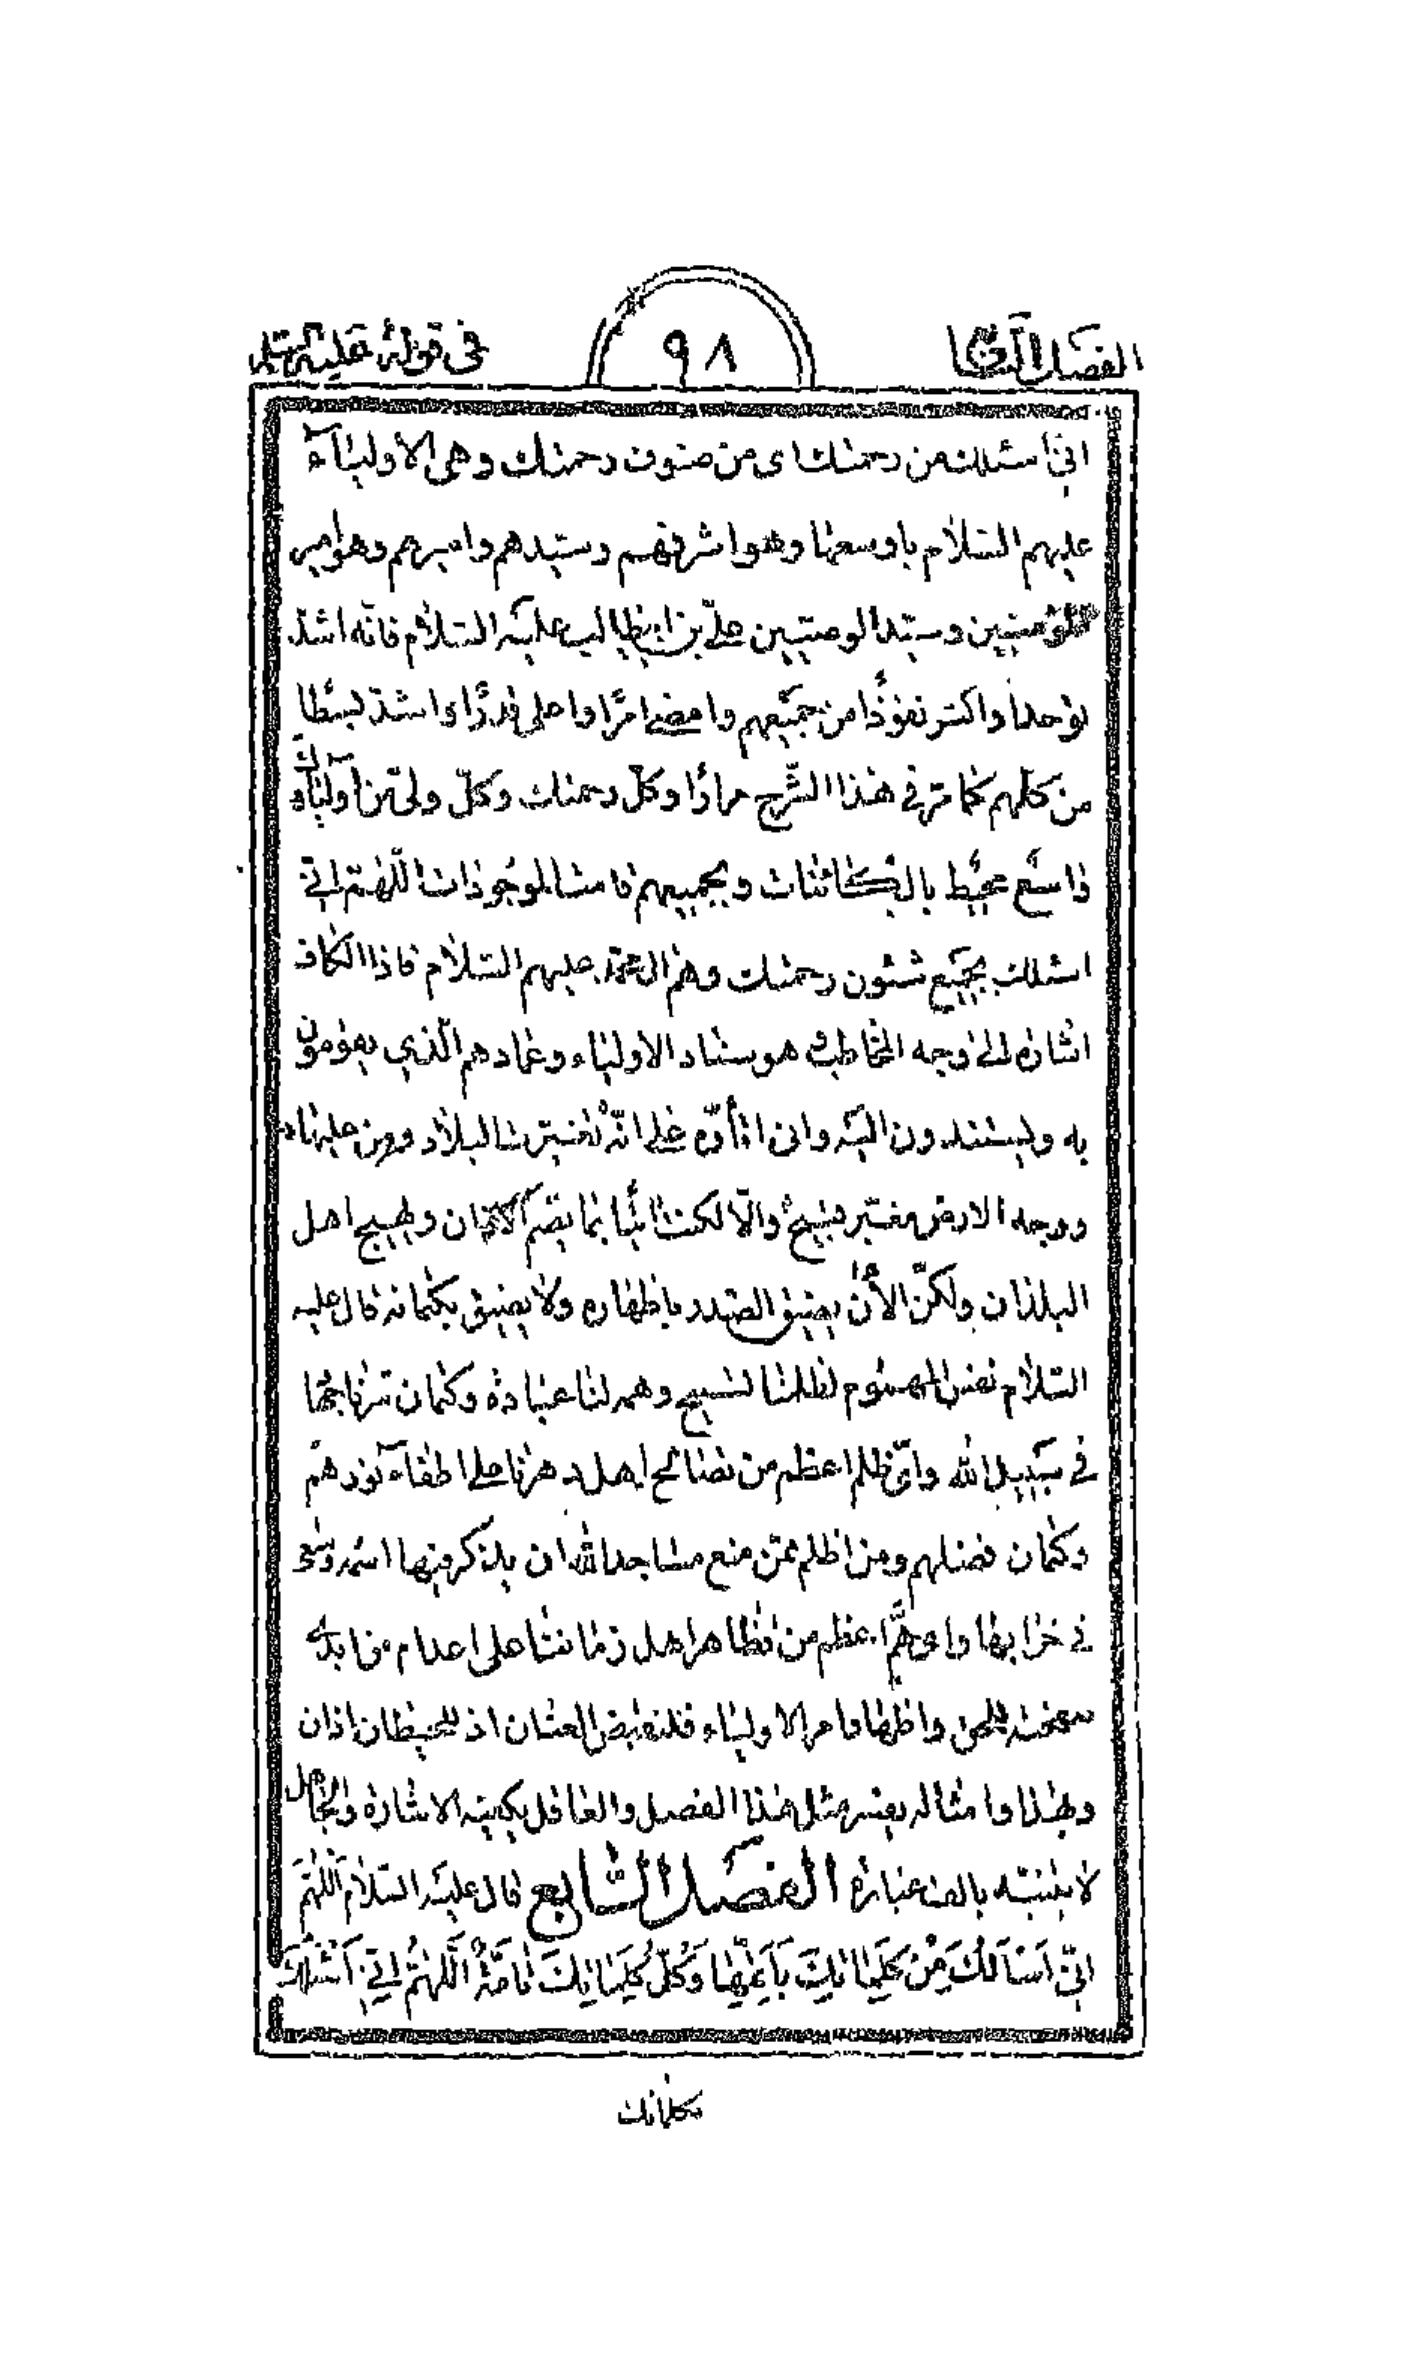 الفصل السابع
٩٨
في قوله عليه السلام
اني اسئلك من رحمتك اي من صنوف رحمتك وهى الاوليآء
عليهم السّلام باوسعها وهو اشرفهم وسيّدهم واميرهم وهو امير
المؤمنين وسيّد الوصيّين علىّ بن ابيطالب عليه السّلام فانّه اشدّ
توحدا واكثر نفوذًا من جميعهم وامضى امرًا واعلى قدرًا واشدّ بسطا
من كلّهم كما مرّ في هذا الشّرح مرارًا وكلّ رحمتك وكلّ ولىّ من اوليآئك
واسع محيط بالكائنات وبجميعهم قامت الموجودات اللّهمّ انّي
اسئلك بجميع شئون رحمتك وهم ال محمّد عليهم السّلام فاذا الكاف
اشارة الى وجه المخاطب وهو سناد الاولياء وعمادهم الّذي يقومون
به ويستندون اليه وان
ووجه الارض مغبّر قبيح والّا لكنت
البلدان ولكنّ الأن يضيق الصّدر باظهاره ولا يضيق بكتمانه قال عليه
السّلام نفس المهموم لظلمنا تسبيح وهمه لنا عبادة وكتمان سرّنا جهاد
في سبيل الله واىّ ظلم اعظم من اهل دهرنا على اطفآء نورهم
وكتمان فضلهم ومن اظلم ممّن منع مساجد الله ان يذكر فيها اسمه وسعى
في خرابها واى همّ اعظم من تظاهر اهل زماننا على اعدام
واظهار امر الاولياء فلنقبض العنان اذ للحيطان اذان
وبهذا وامثاله يفسر مثل هذا الفصل والعاقل يكفيه الاشارة والجاهل
لا ينتبه بالف عبارة الفصل السّابع قال عليه السّلام اللّهمّ
انّي اسألك من كلماتك باتمّها وكلّ كلماتك تامّة اللّهمّ انّي اسئلك
بكلماتك